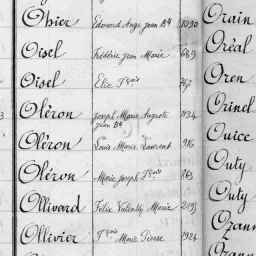 Ohier Edouard Ange Jean Bte 1090
Oisel Frédéric Jean Marie
Oisel Elie Fçois
Oléron Joseph Marie Auguste
Jean Bte
Oléron Louis Marie Laurent 916
Oléron Marie Joseph Fçois
Ollivard Félix Valently Marie
Ollivier Fçois Marie Pierre 1924
Orain
Oréal
Oren
Orinel
Ouice
Outy
Outy
Ozann
Ozann